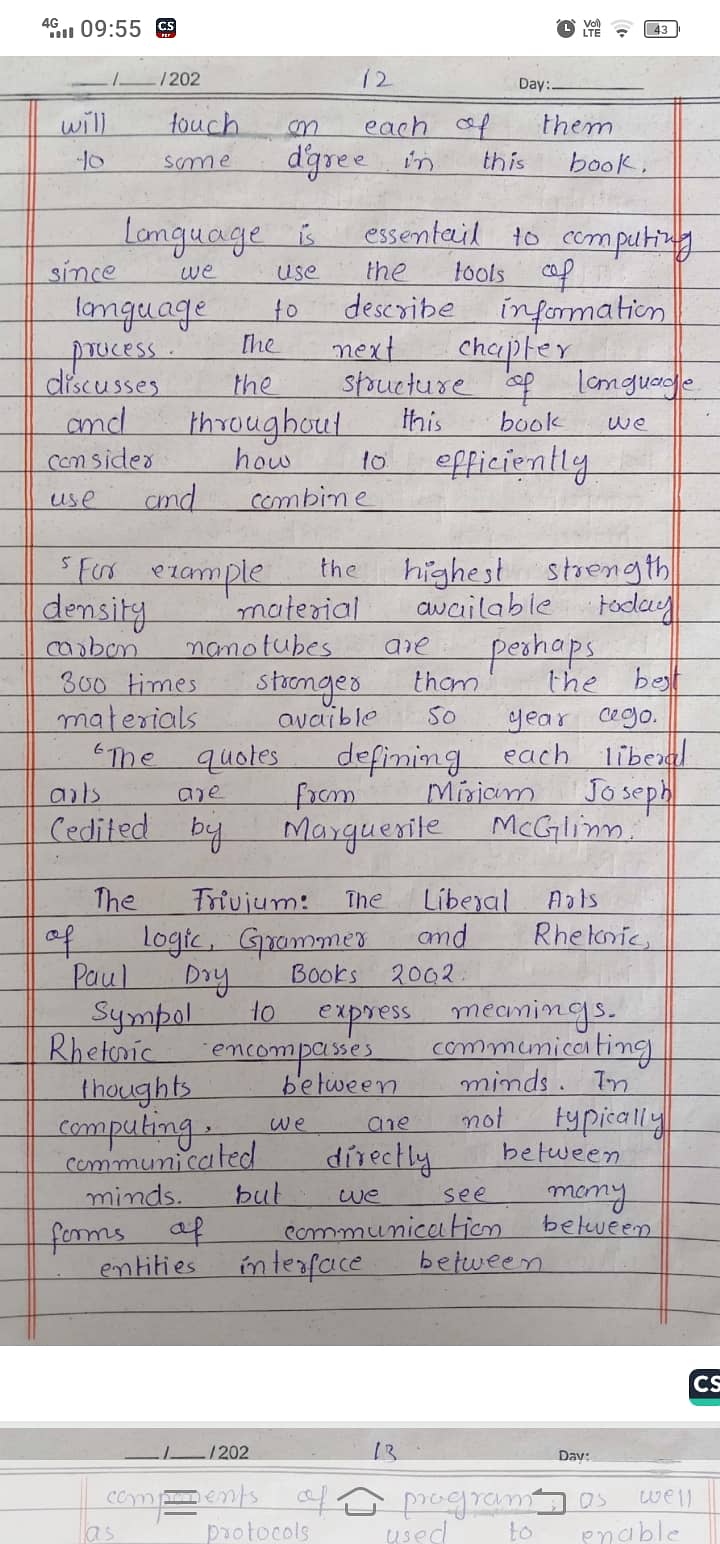 4G 09:55 CS PDF Vo)) LTE 43
__/__/202 12 Day:
will touch on each of them
to some d'gree in this book.
Language is essentail to computing
since we use the tools of
language to describe information
process. The next chapter
discusses the structure of language
and throughout this book we
consider how to efficiently
use and combine
5 For example the highest strength
density material available today
carbon nanotubes are perhaps
300 times stronger than the best
materials avaible 50 year ago.
6 The quotes defining each liberal
arts are from Miriam Joseph
Cedited by Marguerite McGlinn.
The Trivium: The Liberal Arts
of logic, Grammer and Rhetoric,
Paul Dry Books 2002.
Sympol to express meanings.
Rhetoric encompasses communicating
thoughts between minds. In
computing, we are not typically
communicated directly between
minds. but we see many
forms of communication between
entities interface between
CS
__/__/202 13 Day:
components of program, as well
as protocols used to enable